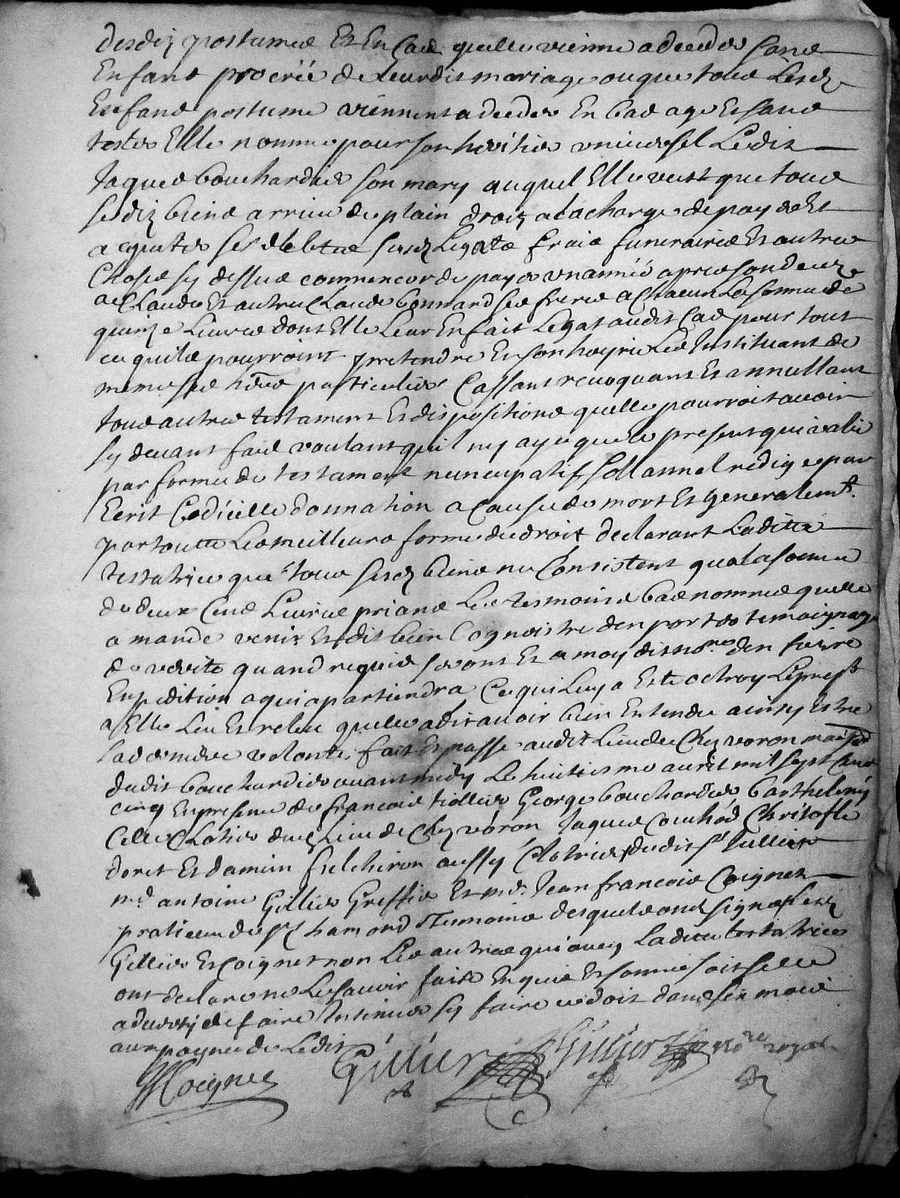 desdiz postume Et En Cas quelle vienne a deceder sans
Enfant procréé de leurdit mariage ou que tous lesdz
Enfans postume viennent a deceder En bas age Et sans
tester Elle nomme pour son heritier universel Ledit
Jaques bouchardier son mary auquel Elle veut que tous
sesdiz biens arrive de plain droiz a la charge de payer Et
acquiter ses debtes sesdz Legats frais funeraires Et autres
Choses sy dessus commencer de payer un année apres son deces
a Claude Et autre Claude bonnard ses freres a chacun La somme de
quinze Livres dont Elle Leur En fait Legat audit Cas pour tout
ce quils pourroint pretendre En son hoyrie Les Instituant de
meme ses hers particulier Cassant revoquant Et annullant
tous autres testament Et dispositions quelle pourroit avoir
sy devant fait voulant quil ny aye que le present qui vallie
par forme de testament nuncupatif sollannel redigé par
Ecrit Codicille donnation a Cause de mort Et generalemt
par toutte Les meilleurs forme de droit declarant Laditte
testatrice que tous sesdz biens ne Consistent qua la somme
de deux Cens Livres priant Les tesmoins bas nommes quelle
a mandé venir Et dit bien Cognoistre den porter temoignage
de verité quand requis seront Et a moy dit nore den faire
Expedition a qui apartiendra Ce qui luy a Eté octroy Le prest
a Elle Leu Et releu quelle a dit avoir bien Entendu ainsy Estre
sa derniere volonté fait Et passé audit Lieu de Chez voron maison
dudit bouchardier avant midy Le huitieme avril mil sept Cent
Cinq En presence de francois tiollier George bouchardier barthelemy
Celle Clotrier dudz Lieu de Chez voron Jaques Couhôd Christofle
doret Et damien fulchiron aussy Clotrier dudit st Jullien
mr antoine Gillier Greffier Et mr Jean francois Coignet
praticien de st Chamond tesmoins desquels ont signé Lesdz
Gillier Et Coignet non Les autres qui avec Laditte testatrice
ont declaré ne Le scavoir faire Enquis Et sommé soit Elle
advertie de faire Insinuer sy faire ce doit dans six mois
aux paynes de Ledit
JfCoignet Gillier Gillier nore royal